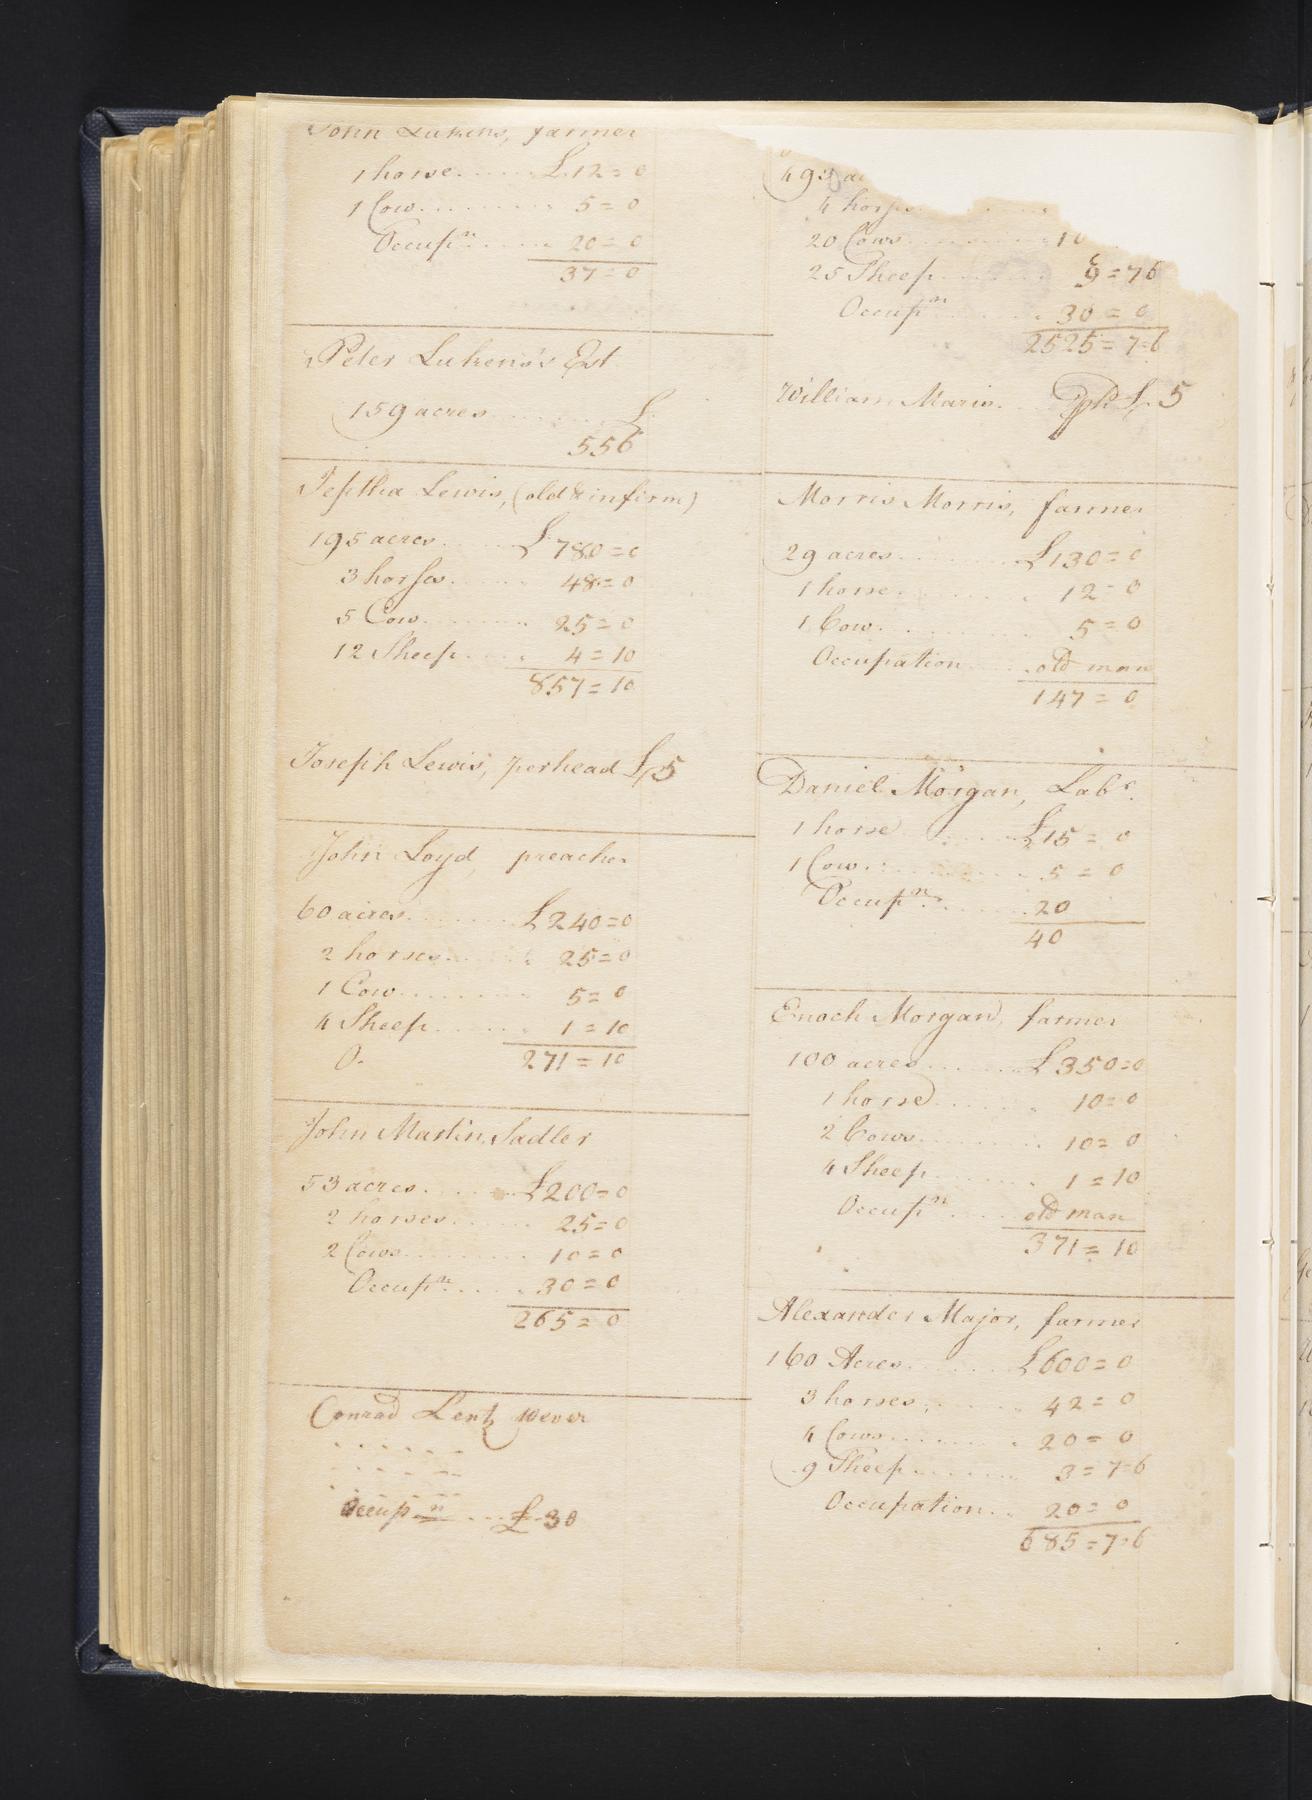 John Lukens, farmer
1 horse......£12=0
1 Cow........5=0
Occup.n......20=0
37=0
Peter Lukens's Est
159 acres........£
556
Jeptha Lewis, (old & infirm)
195 acres......£780=0
3 horses.......48=0
5 Cow........25=0
12 Sheep.....4=10
857=10
Joseph Lewis, perhead £5
John Loyd, preacher
60 acres........£240=0
2 horses.......25=0
1 Cow.........5=0
4 Sheep.......1=10
O.
271=10
John Martin, Sadler
53 acres.......£200=0
2 horses.......25=0
2 Cows.........10=0
Occup.n......30=0
265=0
Conrad Lentz wever
Occup n ....£30
493 ac
4 hors
20 Cows.........10
25 Sheep........9=7 6
Occup.n.......30=0
2525=7=6
William Maris. £5
Morris Morris, farmer
29 acres........£130=0
1 horse........12=0
1 Cow.........5=0
Occupation.....old man
147=0
Daniel Morgan, Labr.
1 horse......£15=0
1 Cow........5=0
Occup.n.......20
40
Enoch Morgan, farmer
100 acres.......£350=0
1 horse........10=0
2 Cows.........10=0
4 Sheep........1=10
Occup.n.....old man
371=10
Alexander Major, farmer
160 Acres.......£600=0
3 horses........42=0
4 Cows.........20=0
9 Sheep........3=7=6
Occupation...20=0
685=7=6